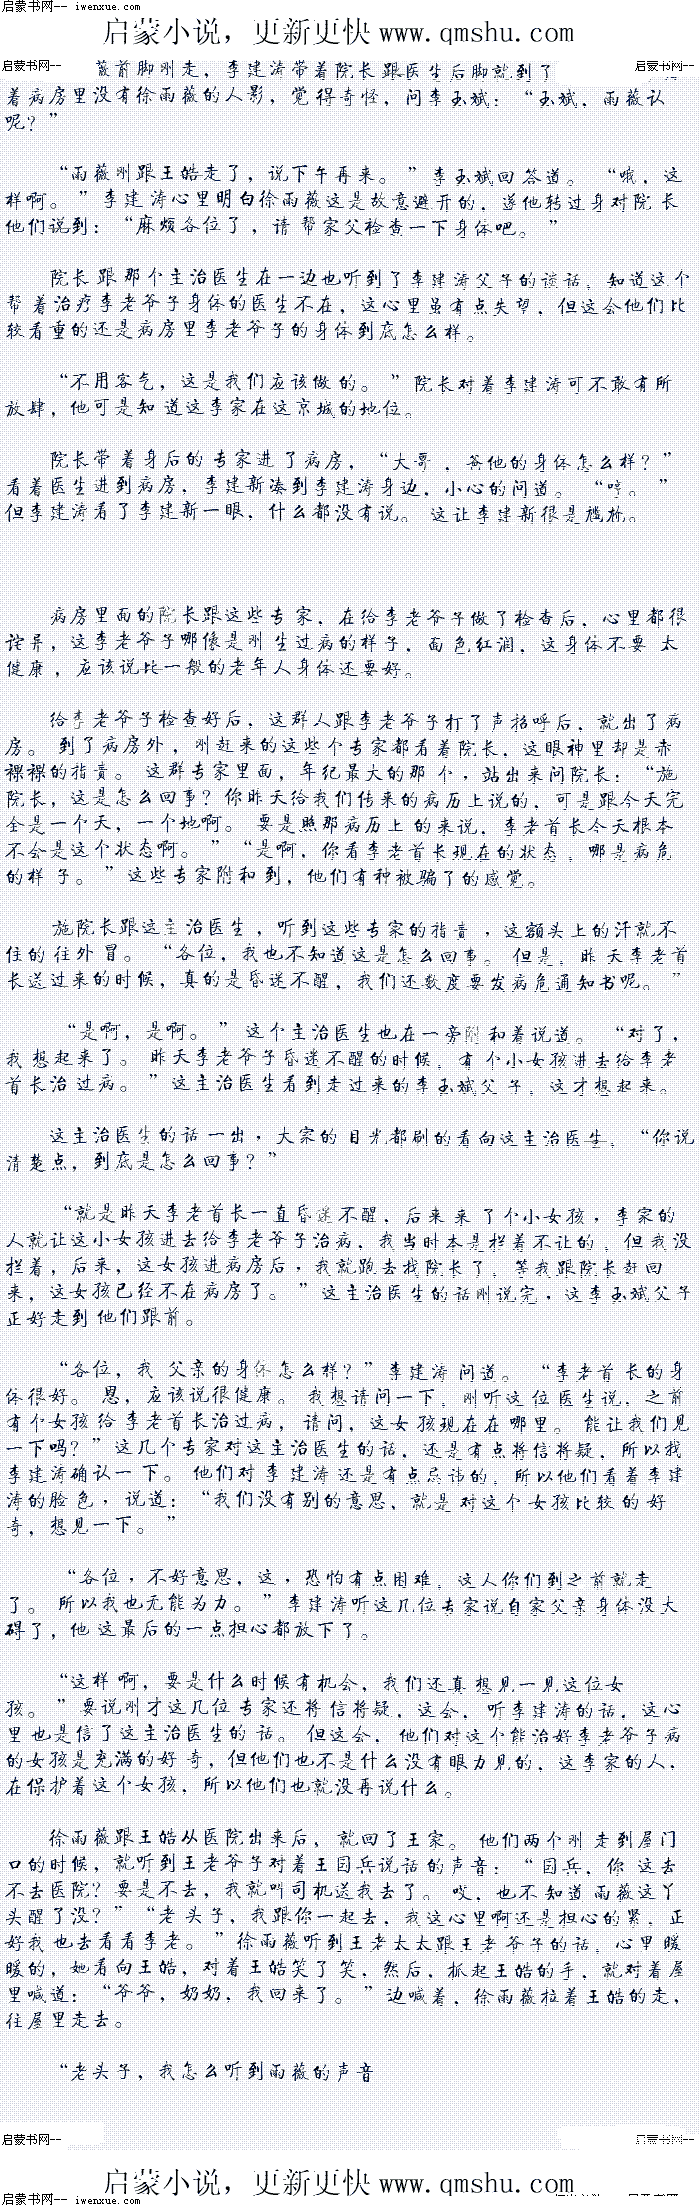 启蒙书网-- iwenxue.com
启蒙小说，更新更快 www.qmshu.com
启蒙书网-- 启蒙书网--
薇前脚刚走，李建涛带着院长跟医生后脚就到了
着病房里没有徐雨薇的人影，觉得奇怪，问李玉斌：“玉斌，雨薇认
呢？”
“雨薇刚跟王皓走了，说下午再来。”李玉斌回答道。“哦，这
样啊。”李建涛心里明白徐雨薇这是故意避开的，遂他转过身对院长
他们说到：“麻烦各位了，请帮家父检查一下身体吧。”
院长跟那个主治医生在一边也听到了李建涛父子的谈话，知道这个
帮着治疗李老爷子身体的医生不在，这心里虽有点失望，但这会他们比
较看重的还是病房里李老爷子的身体到底怎么样。
“不用客气，这是我们应该做的。”院长对着李建涛可不敢有所
放肆，他可是知道这李家在这京城的地位。
院长带着身后的专家进了病房，“大哥，爸他的身体怎么样？”
看着医生进到病房，李建新凑到李建涛身边，小心的问道。“哼。”
但李建涛看了李建新一眼，什么都没有说。这让李建新很是尴尬。
病房里面的院长跟这些专家，在给李老爷子做了检查后，心里都很
诧异，这李老爷子哪像是刚生过病的样子，面色红润，这身体不要太
健康，应该说比一般的老年人身体还要好。
给李老爷子检查好后，这群人跟李老爷子打了声招呼后，就出了病
房。到了病房外，刚赶来的这些个专家都看着院长，这眼神里却是赤
裸裸的指责。这群专家里面，年纪最大的那个，站出来问院长：“施
院长，这是怎么回事？你昨天给我们传来的病历上说的，可是跟今天完
全是一个天，一个地啊。要是照那病历上的来说，李老首长今天根本
不会是这个状态啊。”“是啊，你看李老首长现在的状态，哪是病危
的样子。”这些专家附和到，他们有种被骗了的感觉。
施院长跟这主治医生，听到这些专家的指责，这额头上的汗就不
住的往外冒。“各位，我也不知道这是怎么回事。但是，昨天李老首
长送过来的时候，真的是昏迷不醒，我们还数度要发病危通知书呢。”
“是啊，是啊。”这个主治医生也在一旁附和着说道。“对了，
我想起来了。昨天李老爷子昏迷不醒的时候，有个小女孩进去给李老
首长治过病。”这主治医生看到走过来的李玉斌父子，这才想起来。
这主治医生的话一出，大家的目光都刷的看向这主治医生，“你说
清楚点，到底是怎么回事？”
“就是昨天李老首长一直昏迷不醒，后来来了个小女孩，李家的
人就让这小女孩进去给李老爷子治病，我当时本是拦着不让的，但我没
拦着，后来，这女孩进病房后，我就跑去找院长了，等我跟院长赶回
来，这女孩已经不在病房了。”这主治医生的话刚说完，这李玉斌父子
正好走到他们跟前。
“各位，我父亲的身体怎么样？”李建涛问道。“李老首长的身
体很好。恩，应该说很健康。我想请问一下，刚听这位医生说，之前
有个女孩给李老首长治过病，请问，这女孩现在在哪里。能让我们见
一下吗？”这几个专家对这主治医生的话，还是有点将信将疑，所以找
李建涛确认一下。他们对李建涛还是有点忌讳的，所以他们看着李建
涛的脸色，说道：“我们没有别的意思，就是对这个女孩比较的好
奇，想见一下。”
“各位，不好意思，这，恐怕有点困难，这人你们到之前就走
了。所以我也无能为力。”李建涛听这几位专家说自家父亲身体没大
碍了，他这最后的一点担心都放下了。
“这样啊，要是什么时候有机会，我们还真想见一见这位女
孩。”要说刚才这几位专家还将信将疑，这会，听李建涛的话，这心
里也是信了这主治医生的话。但这会，他们对这个能治好李老爷子病
的女孩是充满的好奇，但他们也不是什么没有眼力见的，这李家的人，
在保护着这个女孩，所以他们也就没再说什么。
徐雨薇跟王皓从医院出来后，就回了王家。他们两个刚走到屋门
口的时候，就听到王老爷子对着王国兵说话的声音：“国兵，你这去
不去医院？要是不去，我就叫司机送我去了。哎，也不知道雨薇这丫
头醒了没？”“老头子，我跟你一起去，我这心里啊还是担心的紧，正
好我也去看看李老。”徐雨薇听到王老太太跟王老爷子的话，心里暖
暖的，她看向王皓，对着王皓笑了笑，然后，抓起王皓的手，就对着屋
里喊道：“爷爷，奶奶，我回来了。”边喊着，徐雨薇拉着王皓的走，
往屋里走去。
“老头子，我怎么听到雨薇的声音
启蒙书网-- 启蒙书网--
启蒙小说，更新更快 www.qmshu.com
启蒙书网-- iwenxue.com